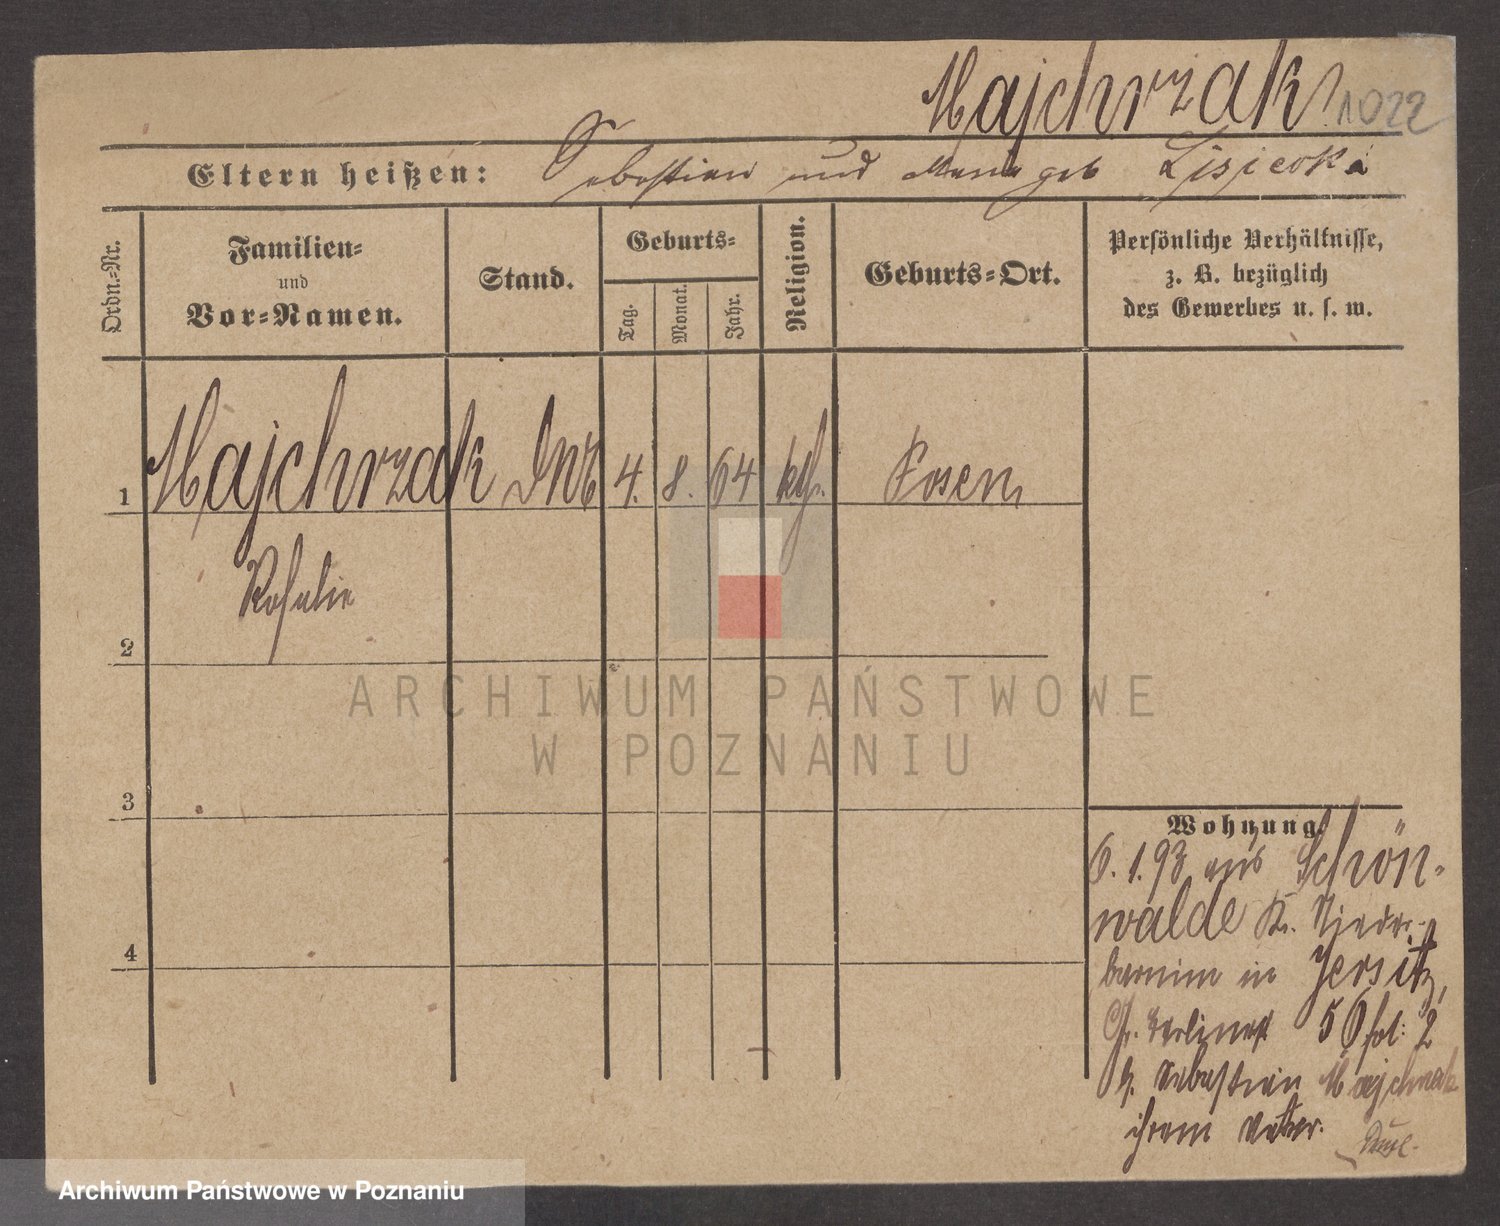 Majchrzak 1022
Eltern heißen: Sebastian und Maria geb Lisiecoka
Ordn.-Nr.
Familien-
und
Vor-Namen.
Stand.
Geburts-
Tag.
Monat.
Jahr.
Religion.
Geburts-Ort.
Persönliche Verhältnisse,
z. B. bezüglich
des Gewerbes u. s. w.
1 Majchrzak 4. 8. 64 kth. Posen
Rosalie
2
3
4
Wohnung.
6. 1. 93 aus Schön-
walde Kr. Nieder-
barnim in Jersitz,
Gr. Berlinerst 56 fol: 2
b. Sebastian Majchrzak
ihrem Vater.
ARCHIWUM PAŃSTWOWE
W POZNANIU
Archiwum Państwowe w Poznaniu